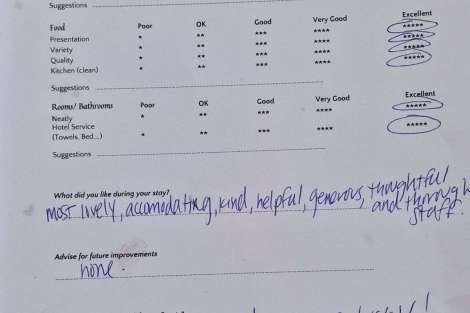 Suggestions
Food Poor OK Good Very Good Excellent
Presentation * ** *** **** *****
Variety * ** *** **** *****
Quality * ** *** **** *****
Kitchen (clean) * ** *** **** *****
Suggestions
Rooms/ Bathrooms Poor OK Good Very Good Excellent
Neatly * ** *** **** *****
Hotel Service
(Towels, Bed...) * ** *** **** *****
Suggestions
What did you like during your stay?
most lively, accomodating, kind, helpful, generous, thoughtful
and through
staff.
Advise for future improvements
none.